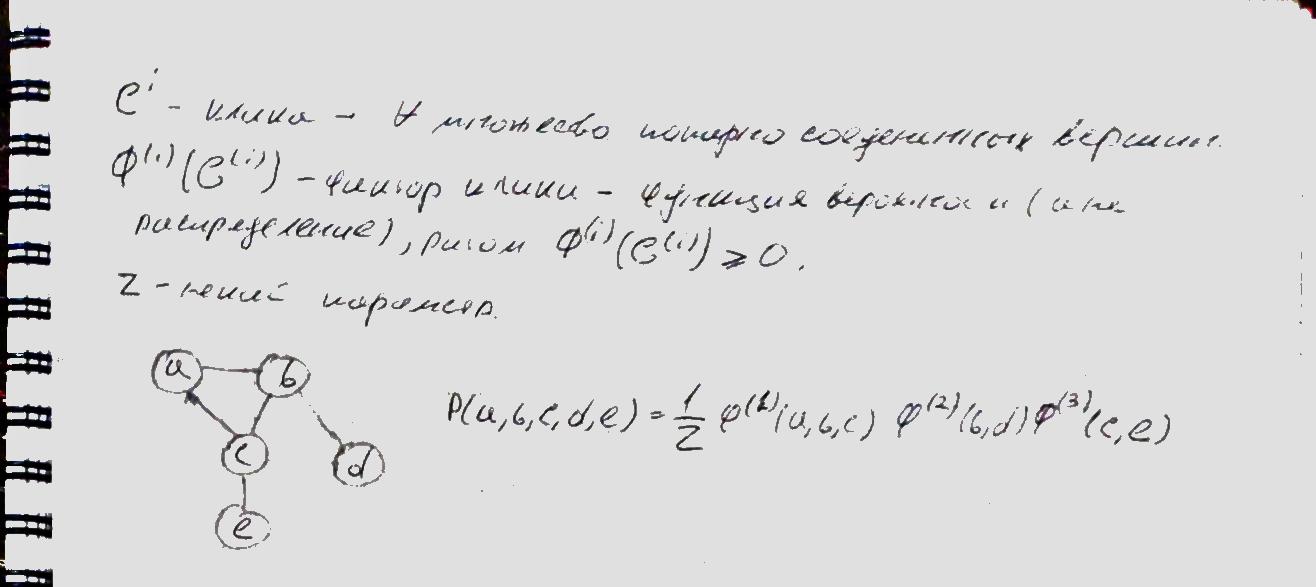 C^i - клика - ∀ множество попарно соединенных вершин.
Ф^(i)(C^(i)) - фактор клики - функция (а не
распределение), Ф^(i)(C^(i)) ⩾ 0.
Z - некий параметр.
a b
P(a,b,c,d,e) = 1/Z φ^(1)(a,b,c) φ^(2)(b,d) φ^(3)(c,e)
c d
e